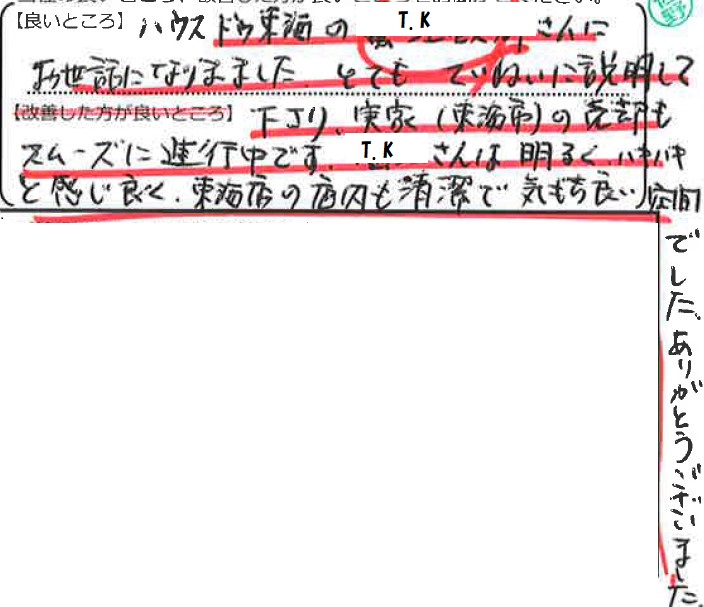 【良いところ】ハウスドゥ東海の T.K さんに
お世話になりました。とても ていねいに説明して
【改善した方が良いところ】下さり、実家(東海市)の売却も
スムーズに進行中です。T.K さんは明るく、ハキハキ
と感じ良く、東海店の店内も清潔で気もち良い空間
でした。ありがとうございました。